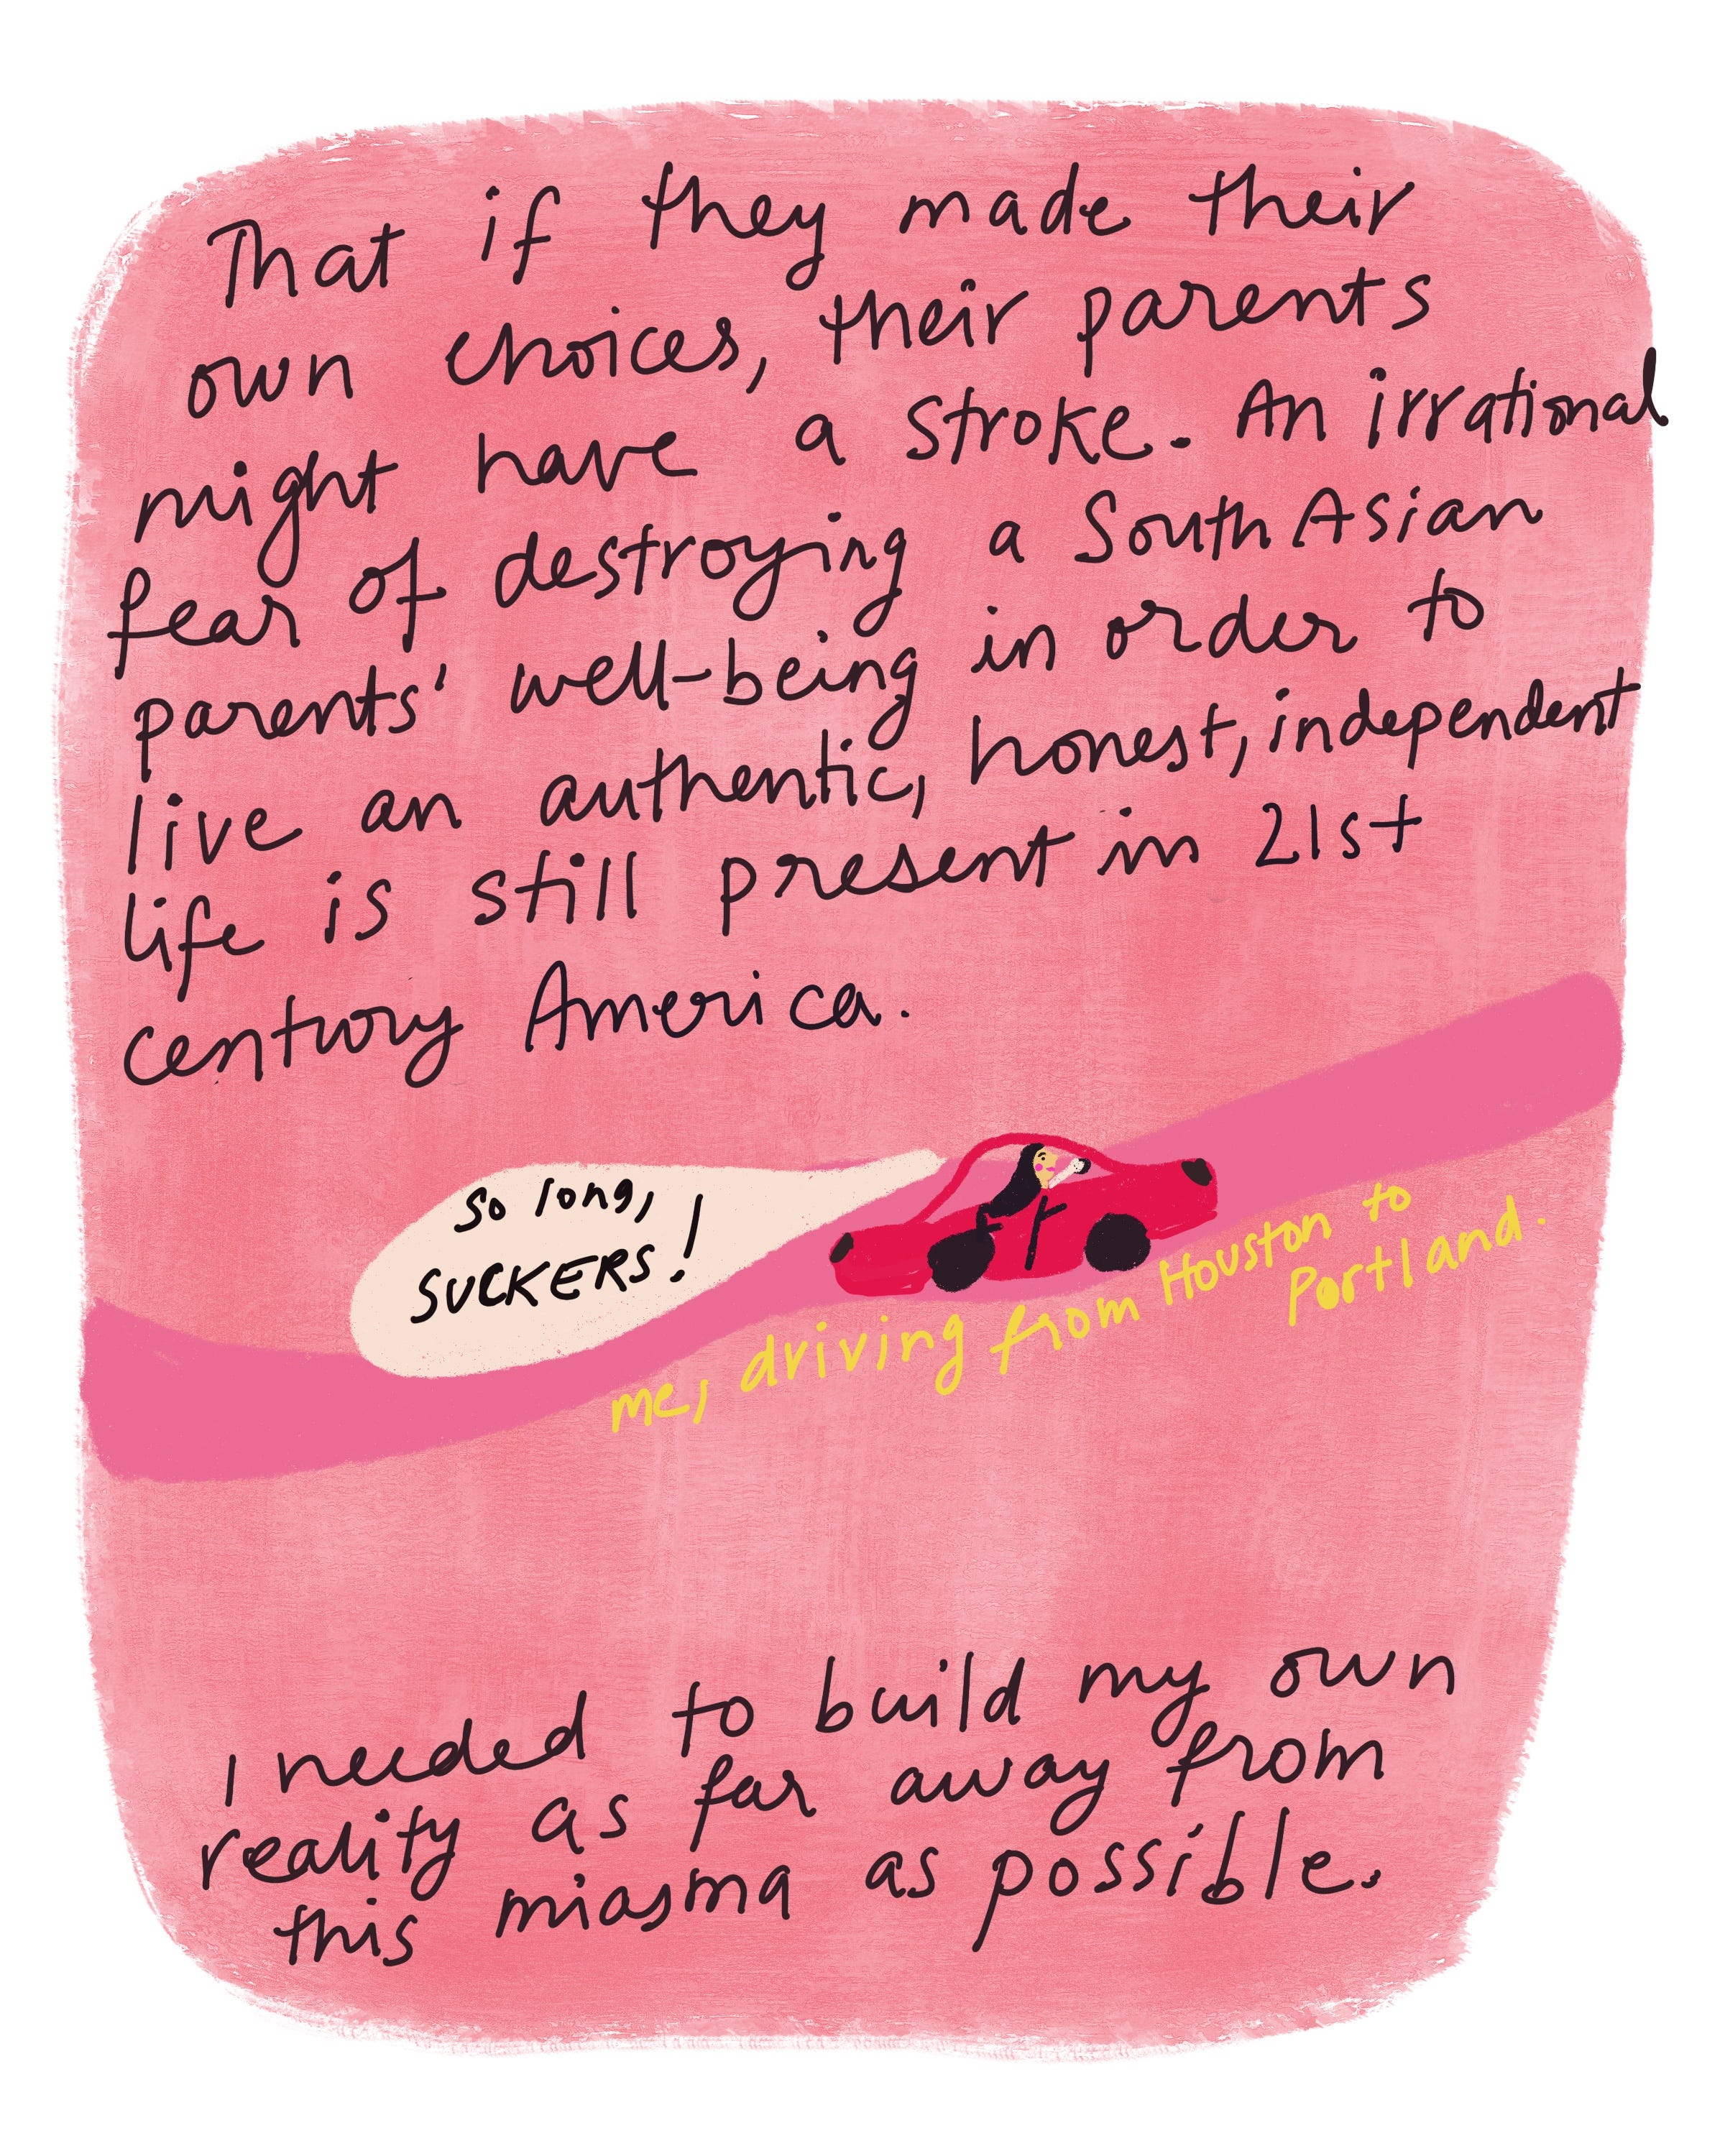 That if they made their
own choices, their parents
might have a stroke. An irrational
fear of destroying a South Asian
parents' well-being in order to
live an authentic, honest, independent
life is still present in 21st
century America.
So long,
SUCKERS!
me, driving from Houston to
Portland.
I needed to build my own
reality as far away from
this miasma as possible.